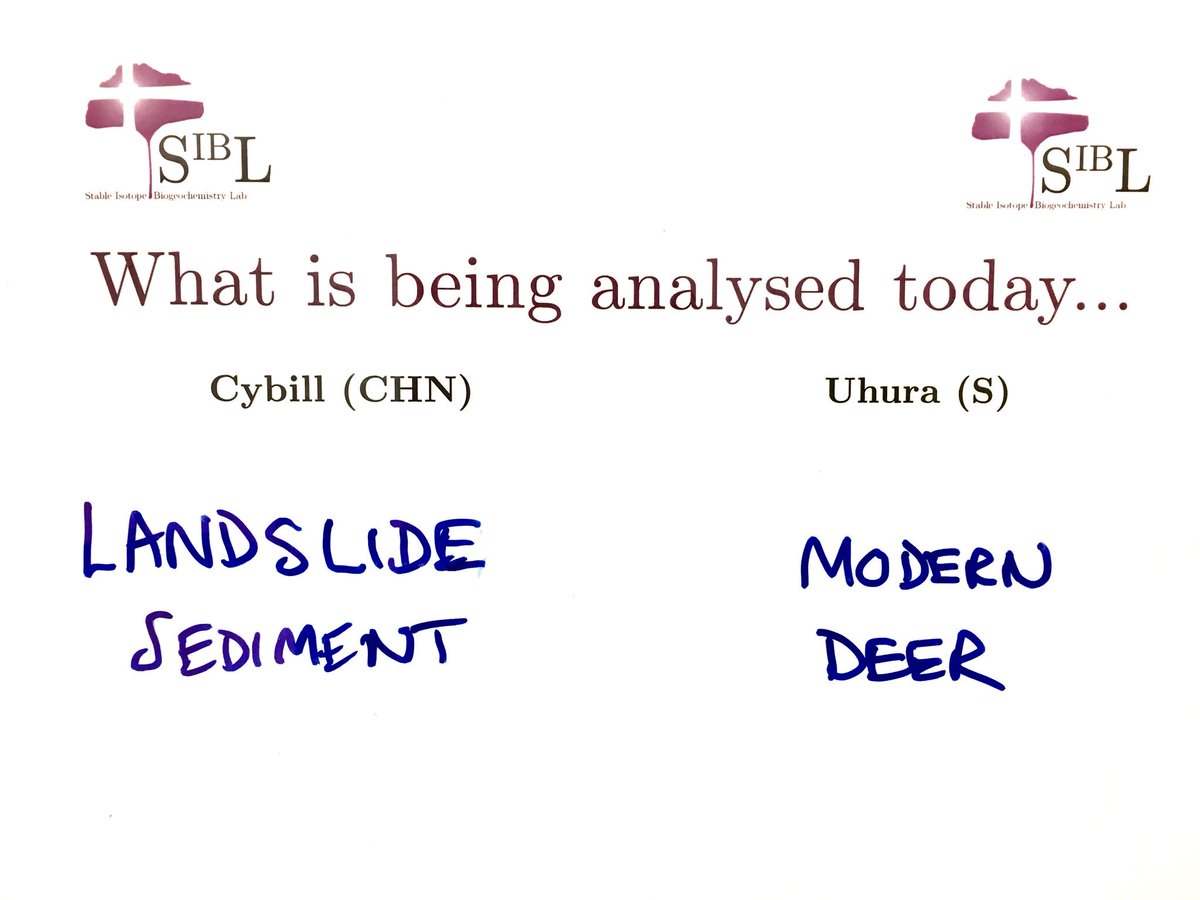 SIBL
Stable Isotope Biogeochemistry Lab
SIBL
Stable Isotope Biogeochemistry Lab
What is being analysed today...
Cybill (CHN)
LANDSLIDE
SEDIMENT
Uhura (S)
MODERN
DEER